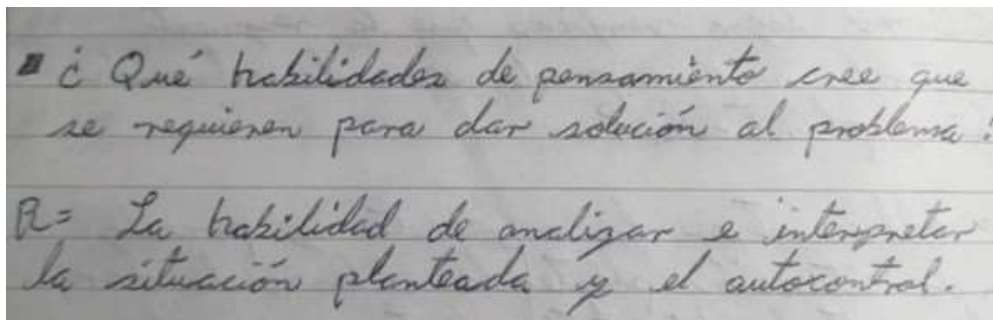 ¿ Qué habilidades de pensamiento cree que
se requieren para dar solución al problema?
R= La habilidad de analizar e interpretar
la situación planteada y el autocontrol.